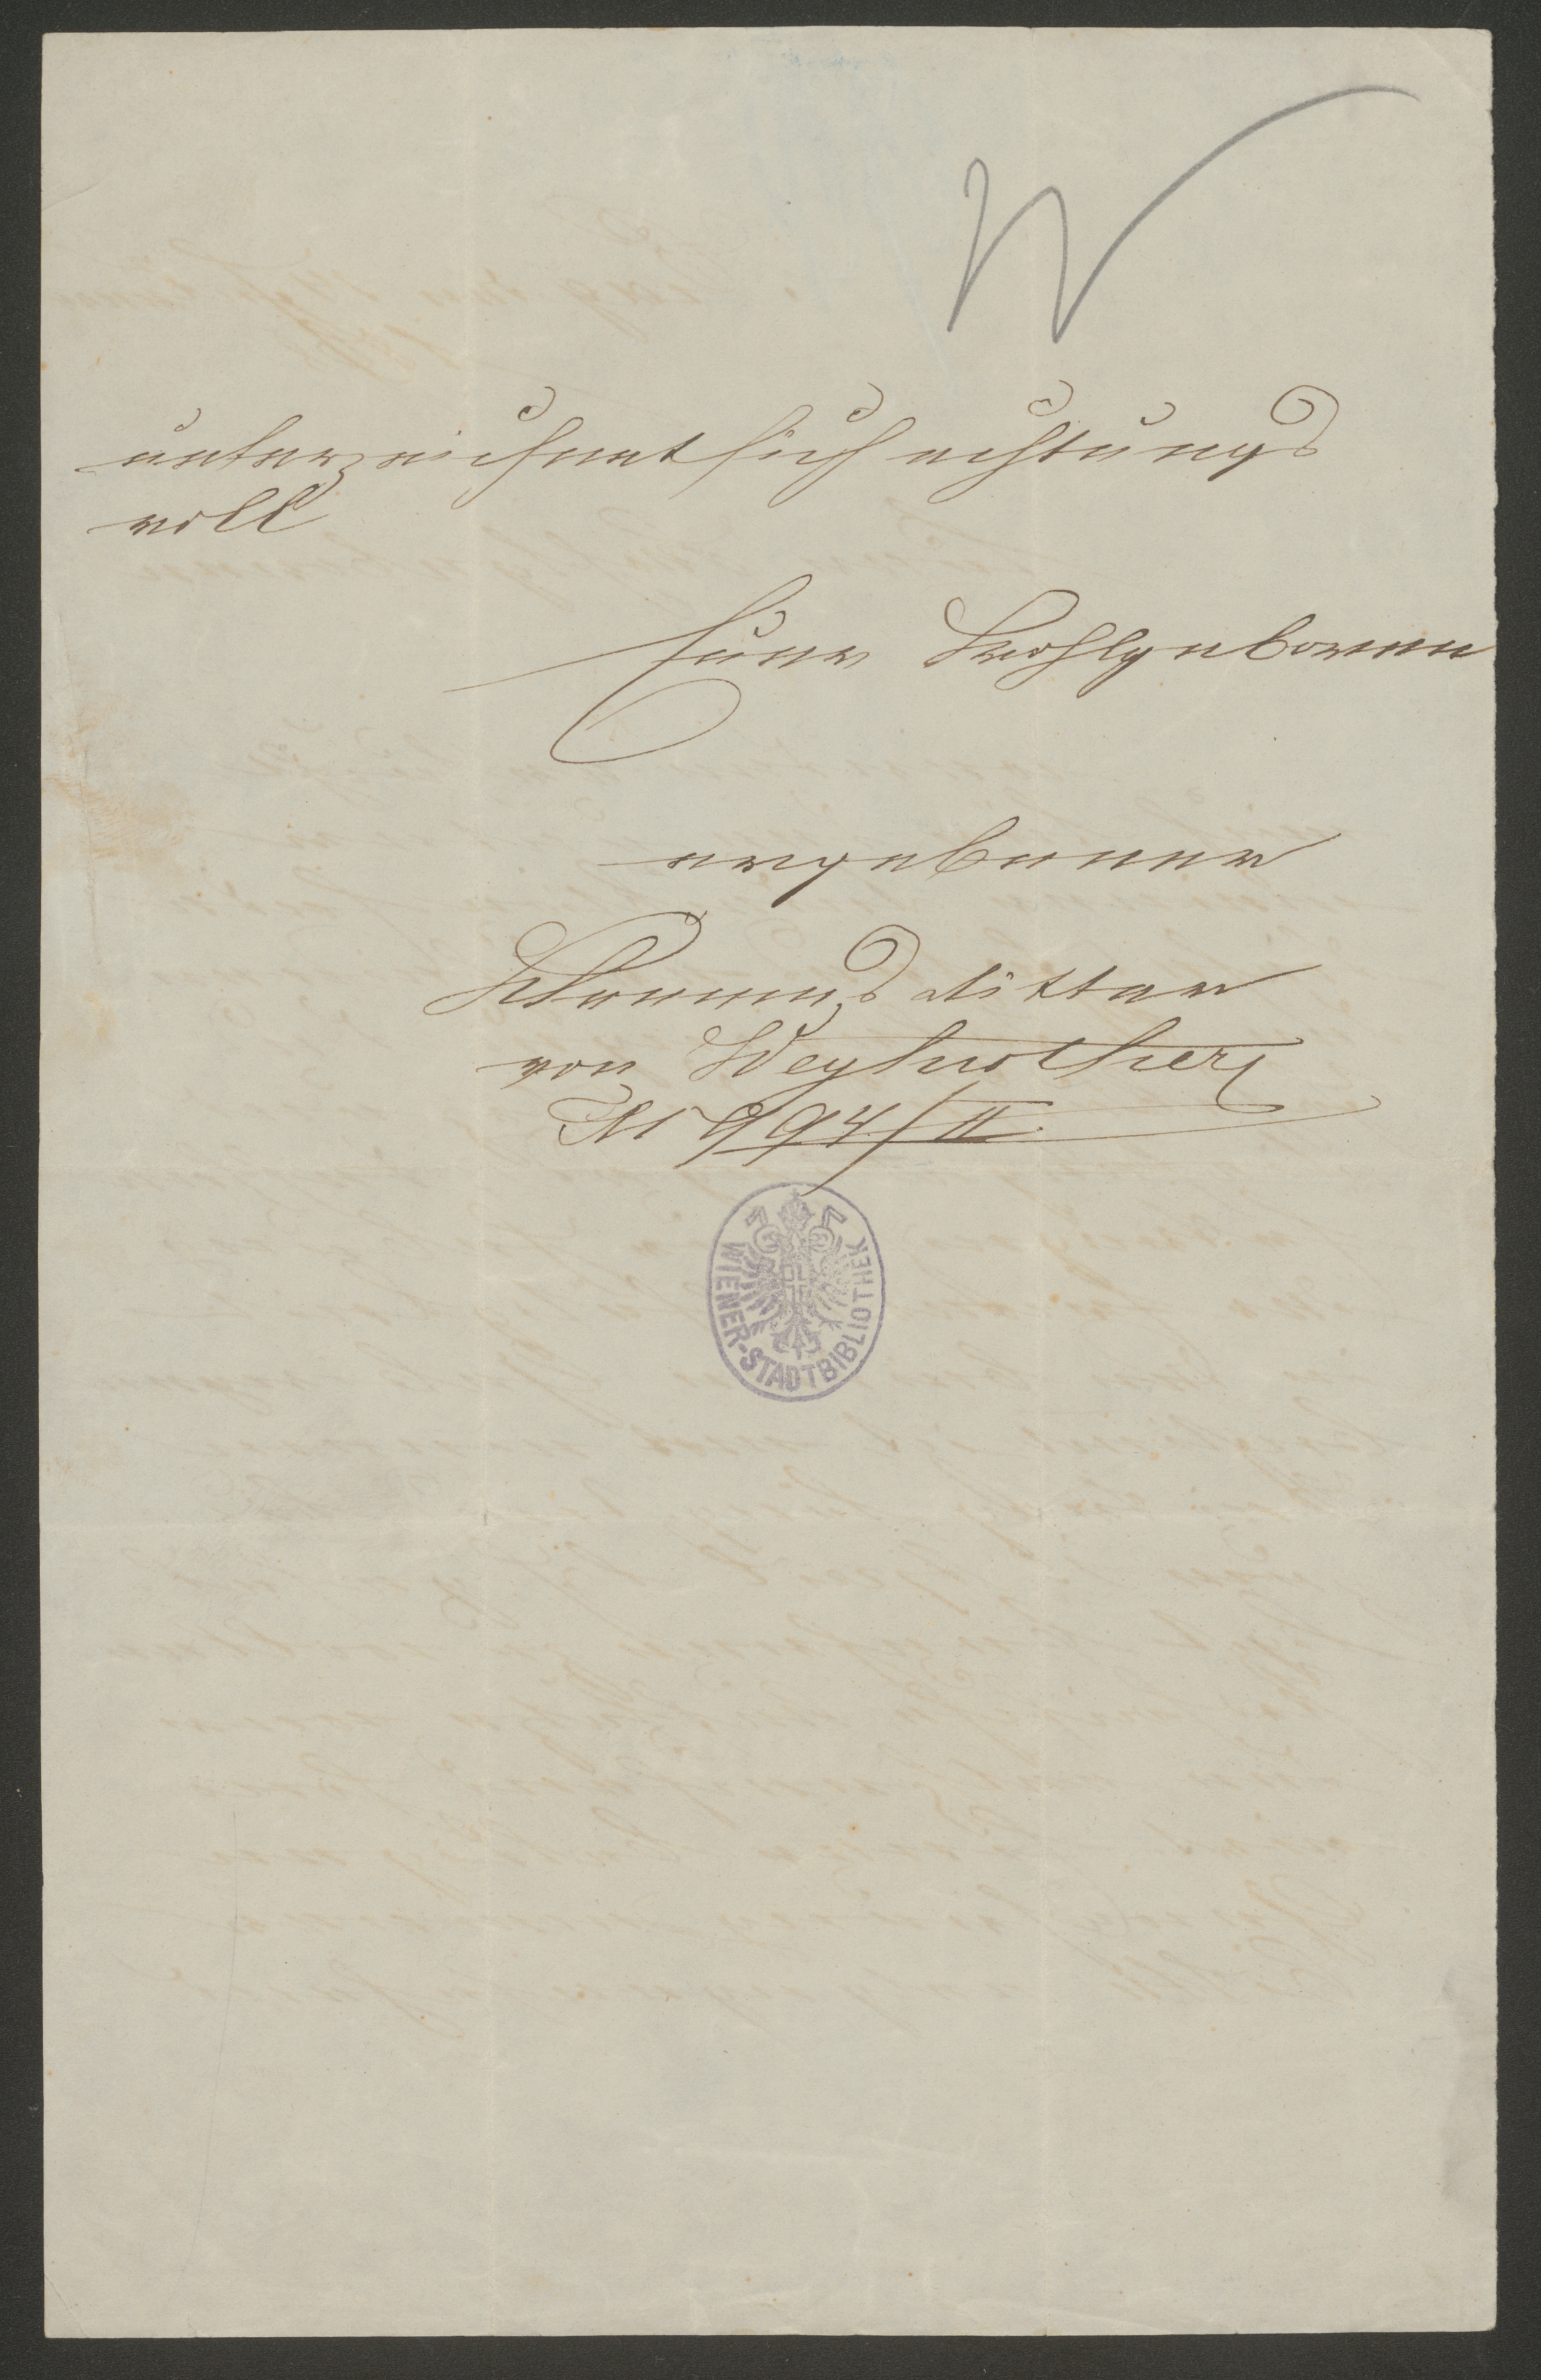 W
unterzeichnet sich achtungs
voll
Euer Wohlgeboren
ergebener
Klemens Ritter
von Weyhrother
N 994/II
WIENER-STADTBIBLIOTHEK